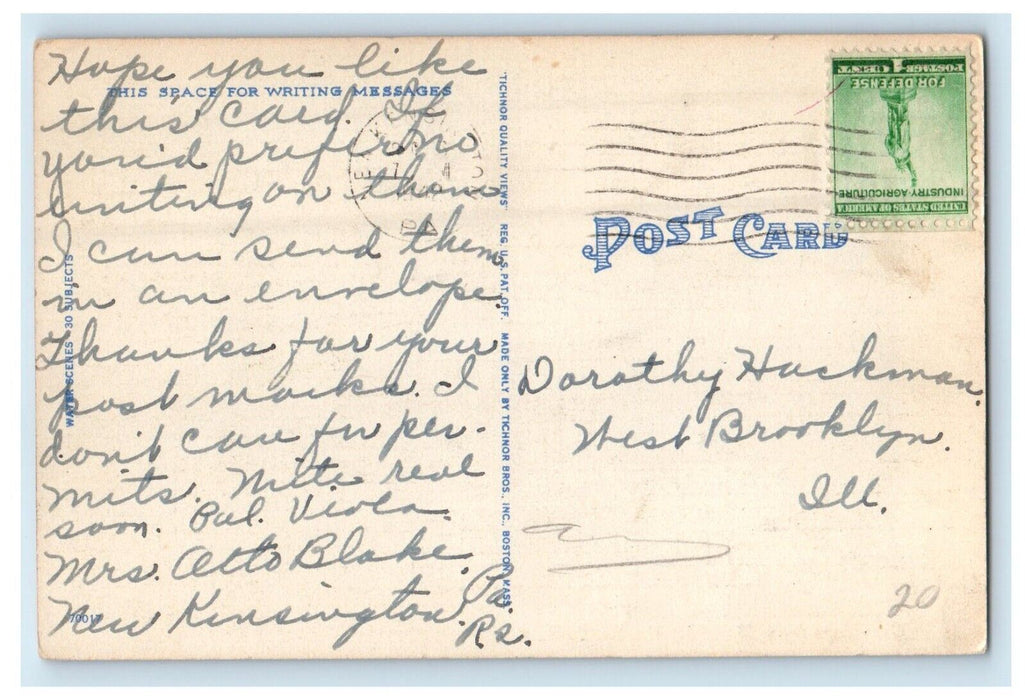 Hope you like
THIS SPACE FOR WRITING MESSAGES
this card. If
you'd prefer no
writing on them
I can send them
in an envelope.
Thanks for your
post marks. I
don't care for per-
mits. Write real
soon. Pal. Viola.
Mrs. Otto Blake.
New Kensington. Pa.
R2.
70017
WATER SCENES 30 SUBJECTS
"TICHNOR QUALITY VIEWS" REG. U. S. PAT. OFF. MADE ONLY BY TICHNOR BROS., INC., BOSTON, MASS.
POST CARD
UNITED STATES OF AMERICA
INDUSTRY AGRICULTURE
FOR DEFENSE
1 CENT POSTAGE
Dorothy Hackman.
West Brooklyn.
Ill.
20